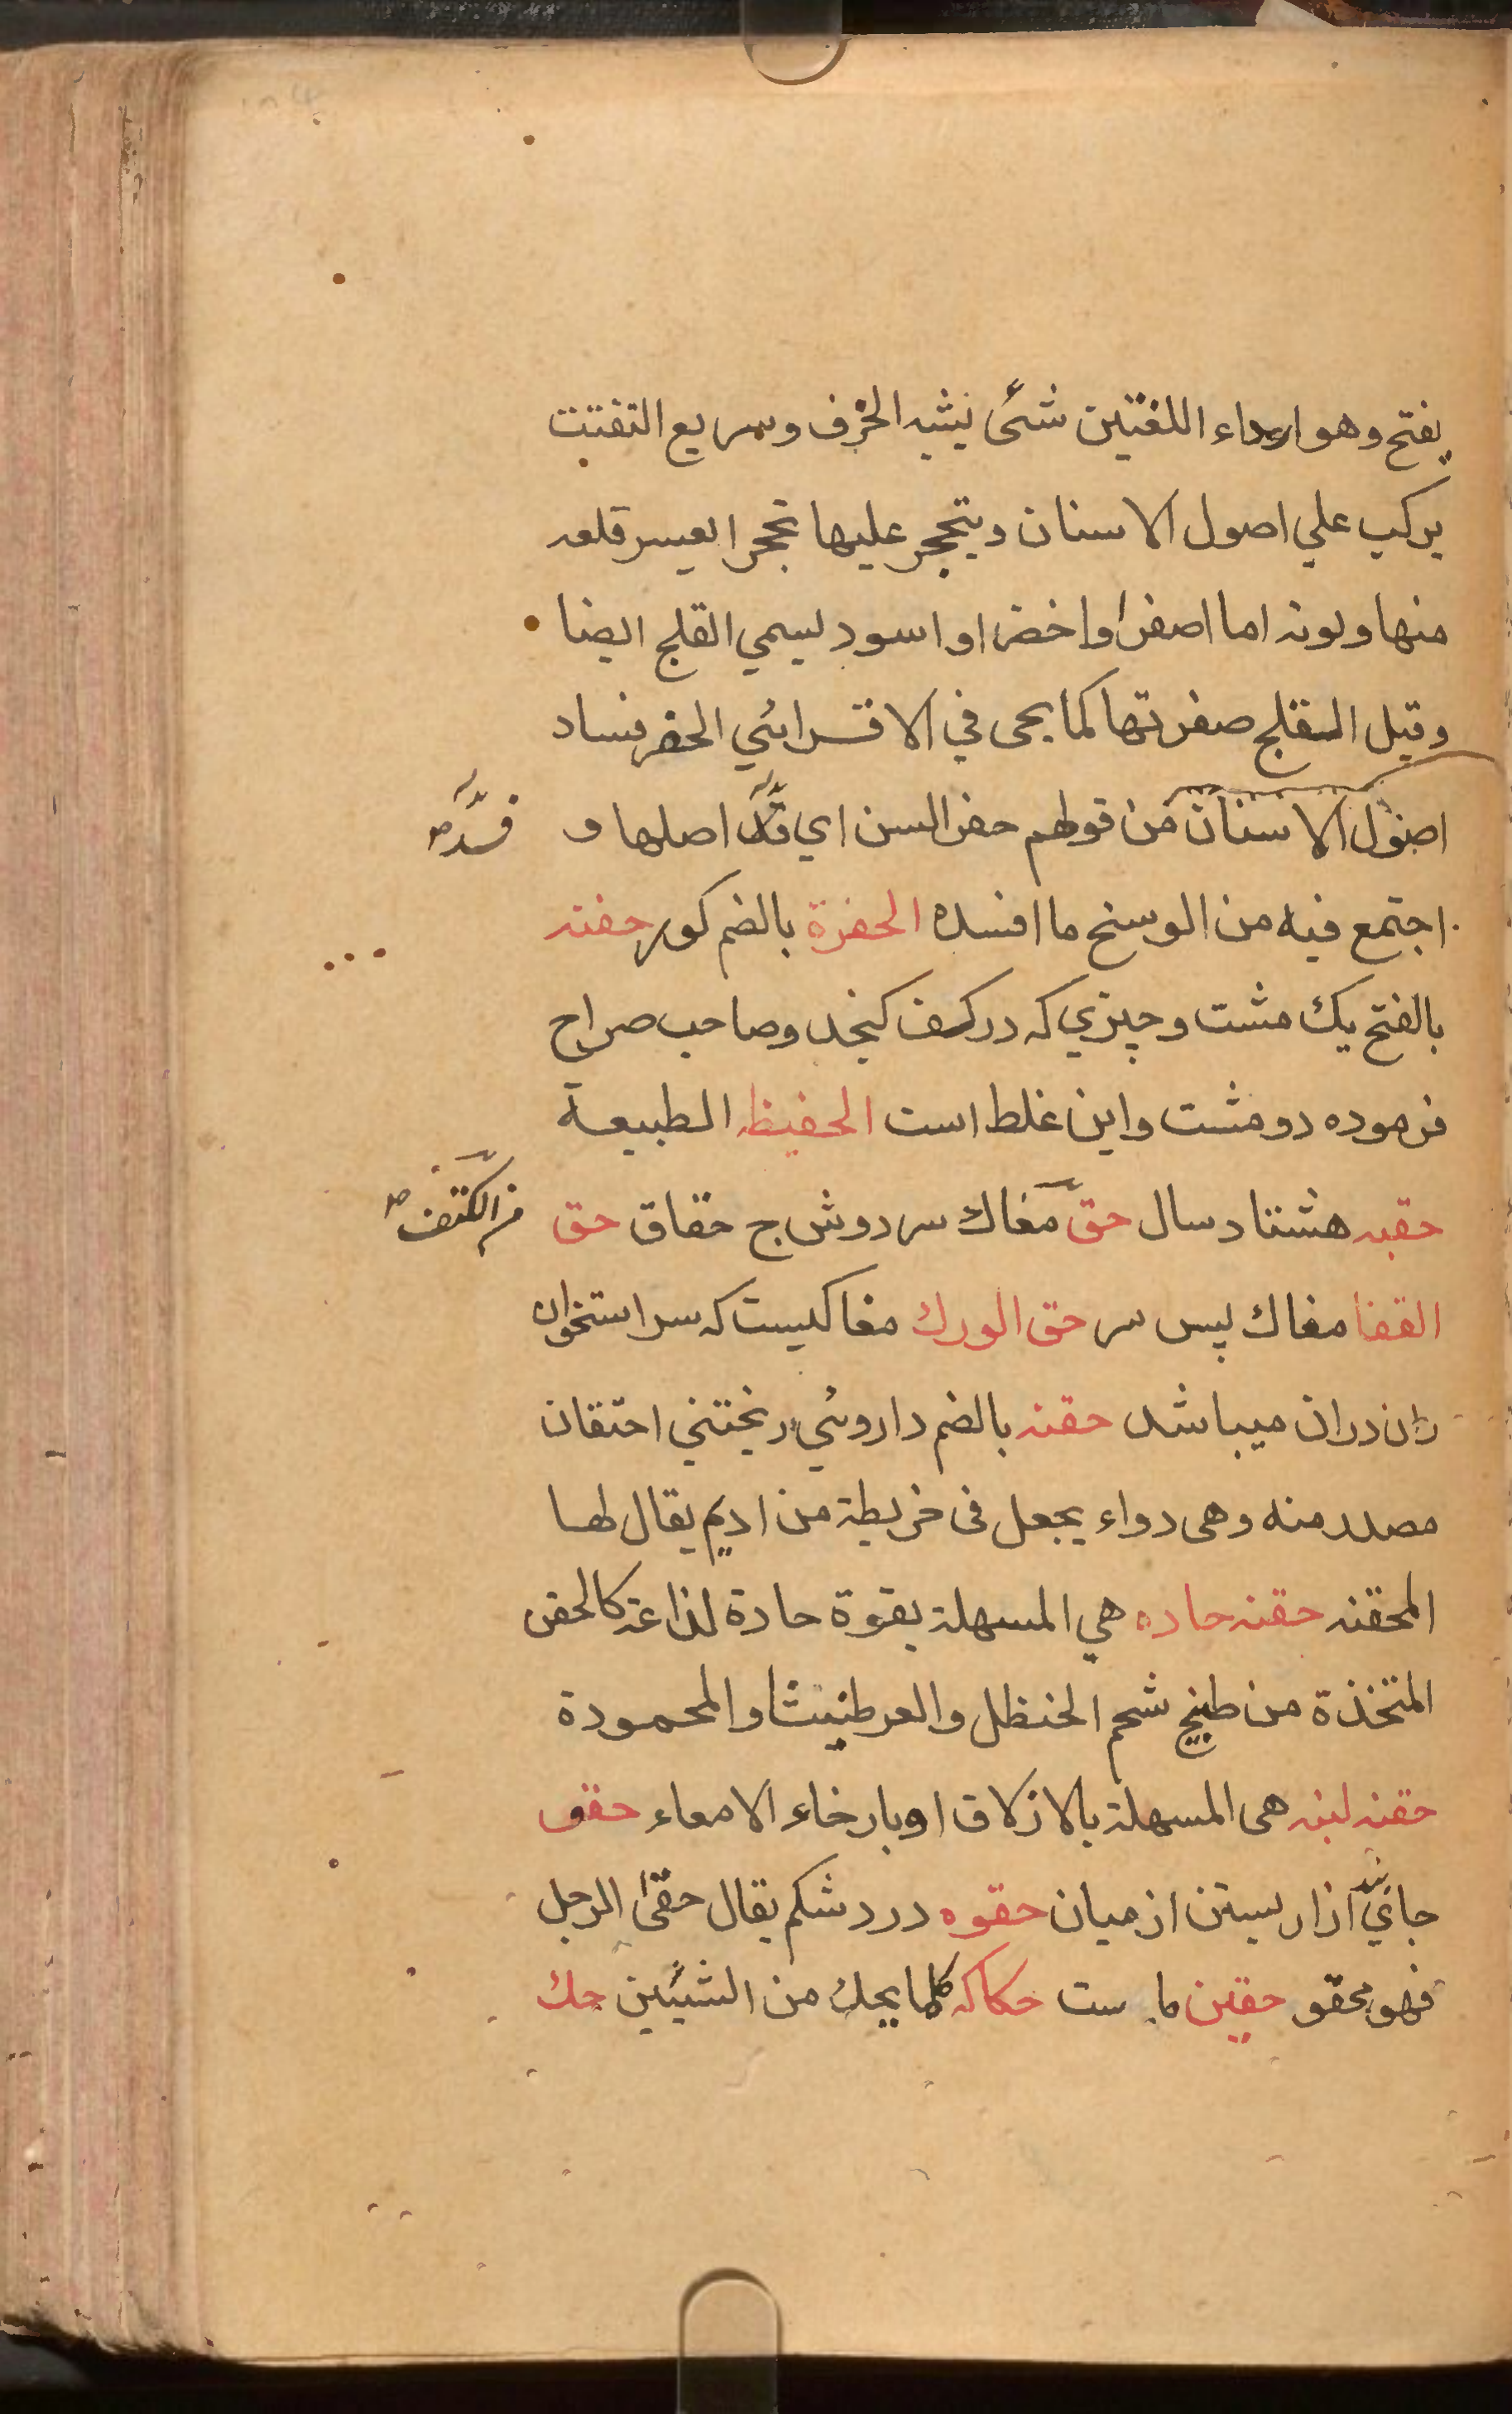 يفتح وهو ارداء اللغتين شئ يشبه الخزف وسريع التفتت
يركب علي اصول الاسنان ويتحجر عليها تحجرا يعسر قلعه
منها ولونه اما اصفر او اخضر او اسود يسمي القلج ايضا
وقيل القلج صفرتها كما يجى في الاقسرائي الحفر فساد
اصول الاسنان من قولهم حفر السن اي قد اصلها و
فسد صح
اجتمع فيه من الوسخ ما افسده الحفرة بالضم كور حفنه
بالفتح يك مشت وچيزي كه در كف كنجد وصاحب صراح
فرموده دو مشت واين غلط است الحفيظه الطبيعة
حقبه هشتاد سال حق مغاك سر دوش ج حقاق حق
من الكتف صح
القفا مغاك پس سر حق الورك مغاكيست كه سر استخوان
ران دران ميباشد حقنه بالضم داروئي ريختني احتقان
مصدر منه وهى دواء يجعل فى خريطة من اديم يقال لها
المحقنه حقنه حاده هي المسهلة بقوة حادة لذاعة كالحقن
المتخذة من طبيخ شحم الحنظل والعرطنيثا والمحمودة
حقنه لينه هى المسهلة بالازلاق او بارخاء الامعاء حقو
جاي ازار بستن از ميان حقوه درد شكم يقال حقى الرجل
فهو محقو حقين ماست حكاكه كلما يحك من الشيئين حك